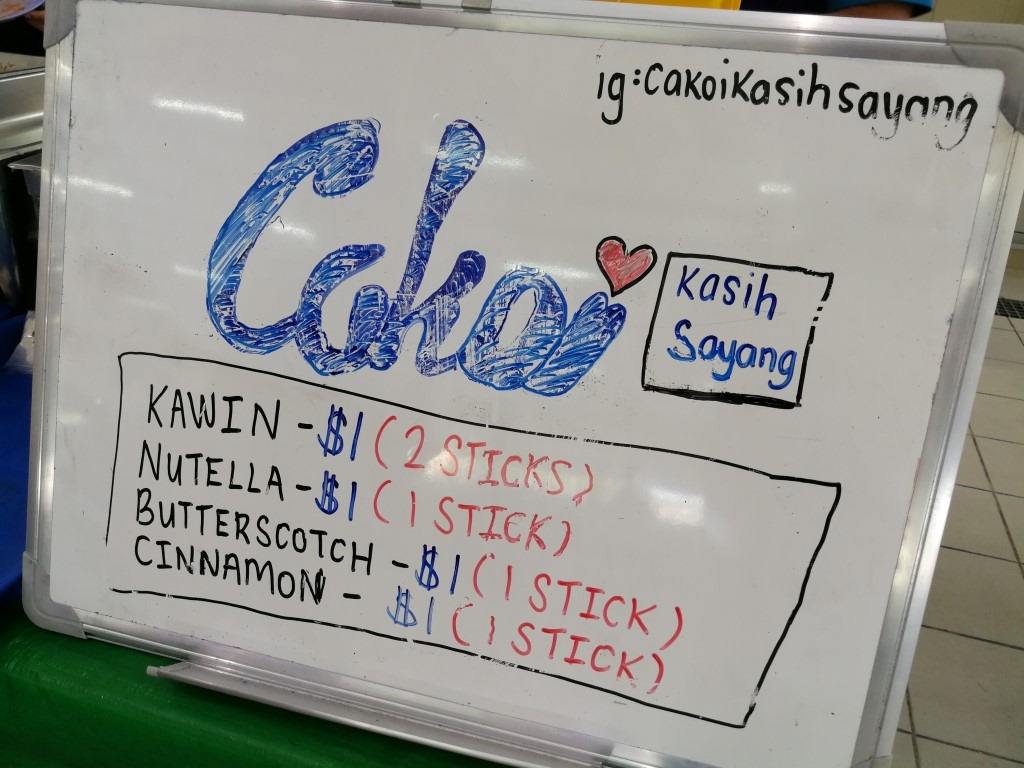 ig:cakoikasihsayang
Cakoi
Kasih
Sayang
KAWIN - $1 (2 STICKS)
NUTELLA - $1 (1 STICK)
BUTTERSCOTCH - $1 (1 STICK)
CINNAMON - $1 (1 STICK)